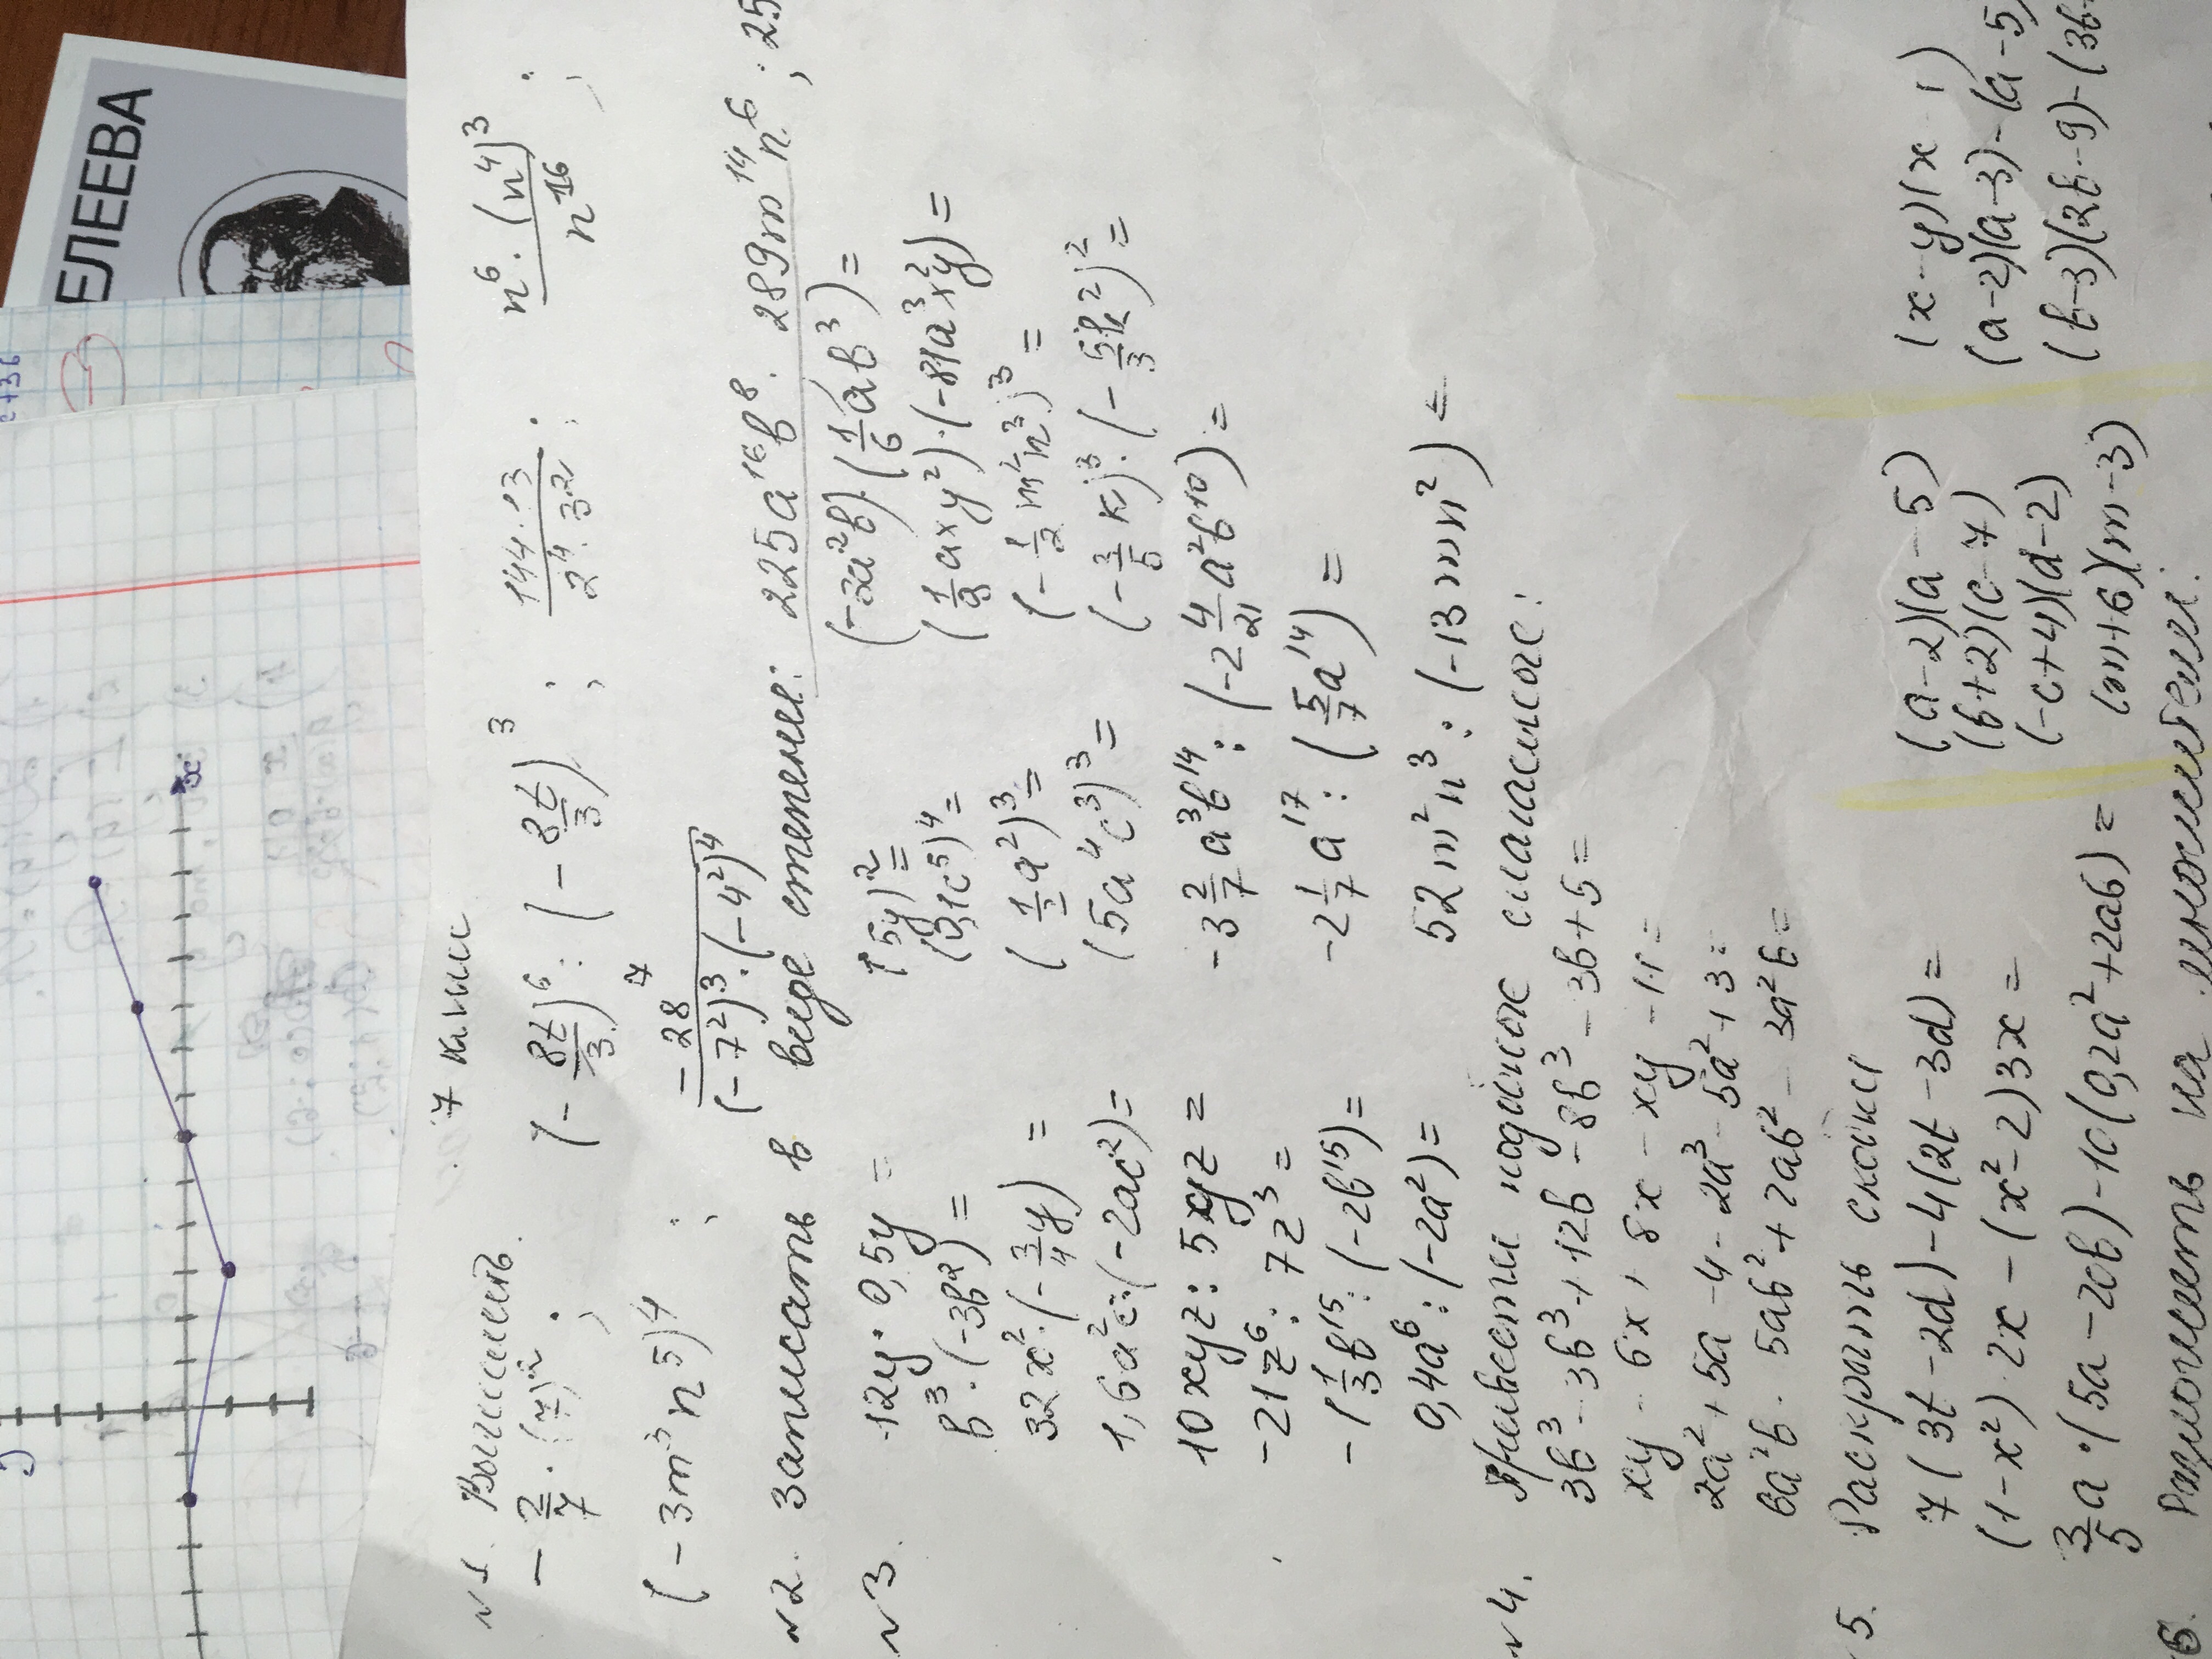 ЕЛЕЕВА
7 класс
№1. Вычислить.
-2/7 · (7)²;   (-8t/3)⁶ : (-8t/3)³;   144·13/(2⁴·3²);   n⁶·(n⁴)³/n¹⁶;
(-3m³n⁵)⁴;   -28⁷/((-7²)³·(-4²)⁴)
№2. Записать в виде степени: 225a¹⁶b⁸. 289m¹⁴n⁶; 25
№3.
-12y·0,5y =   5y)² =   (-3a²b)·(1/6ab³) =
b³·(-3b²) =   (0,1c⁵)⁴ =   (1/9axy²)·(-81a³x²y) =
32x²·(-3/4y) =   a²)³ =   (-1/2 n³)³ =
1,6a²c·(-2ac²) =   (5a⁴c³)³ =
10xyz : 5xyz =   -3 2/7a³b¹⁴ : (-2 4/21a²b¹⁰) =
-21z⁶ : 7z³ =   -2 1/7a¹⁷ : (5/7a¹⁴) =
-(1/3b¹⁵ : (-2b¹⁵) =
0,4a⁶ : (-2a²) =   52m²n³ : (-13mn²) =
№4. Привести подобные слагаемые:
3b³ - 3b³ + 12b - 8b³ - 3b + 5 =
xy - 6x + 8x - xy - 11 =
2a² + 5a - 4 - 2a³ - 5a² + 3 =
6a²b - 5ab² + 2ab² - 3a²b =
5. Раскрыть скобки
7(3t - 2d) - 4(2t - 3d) =   (a-2)(a-5)   (x-y)(x-1)
(1-x²)·2x - (x²-2)3x =   (b+2)(c-7)   (a-2)(a-3)-(a-5)
3/5a·(5a-20b) - 10(0,2a²+2ab) =   (-c+4)(d-2)   (b-3)(2b-9)-(3b-
(m+6)(m-3)
6. Разложить на множители: